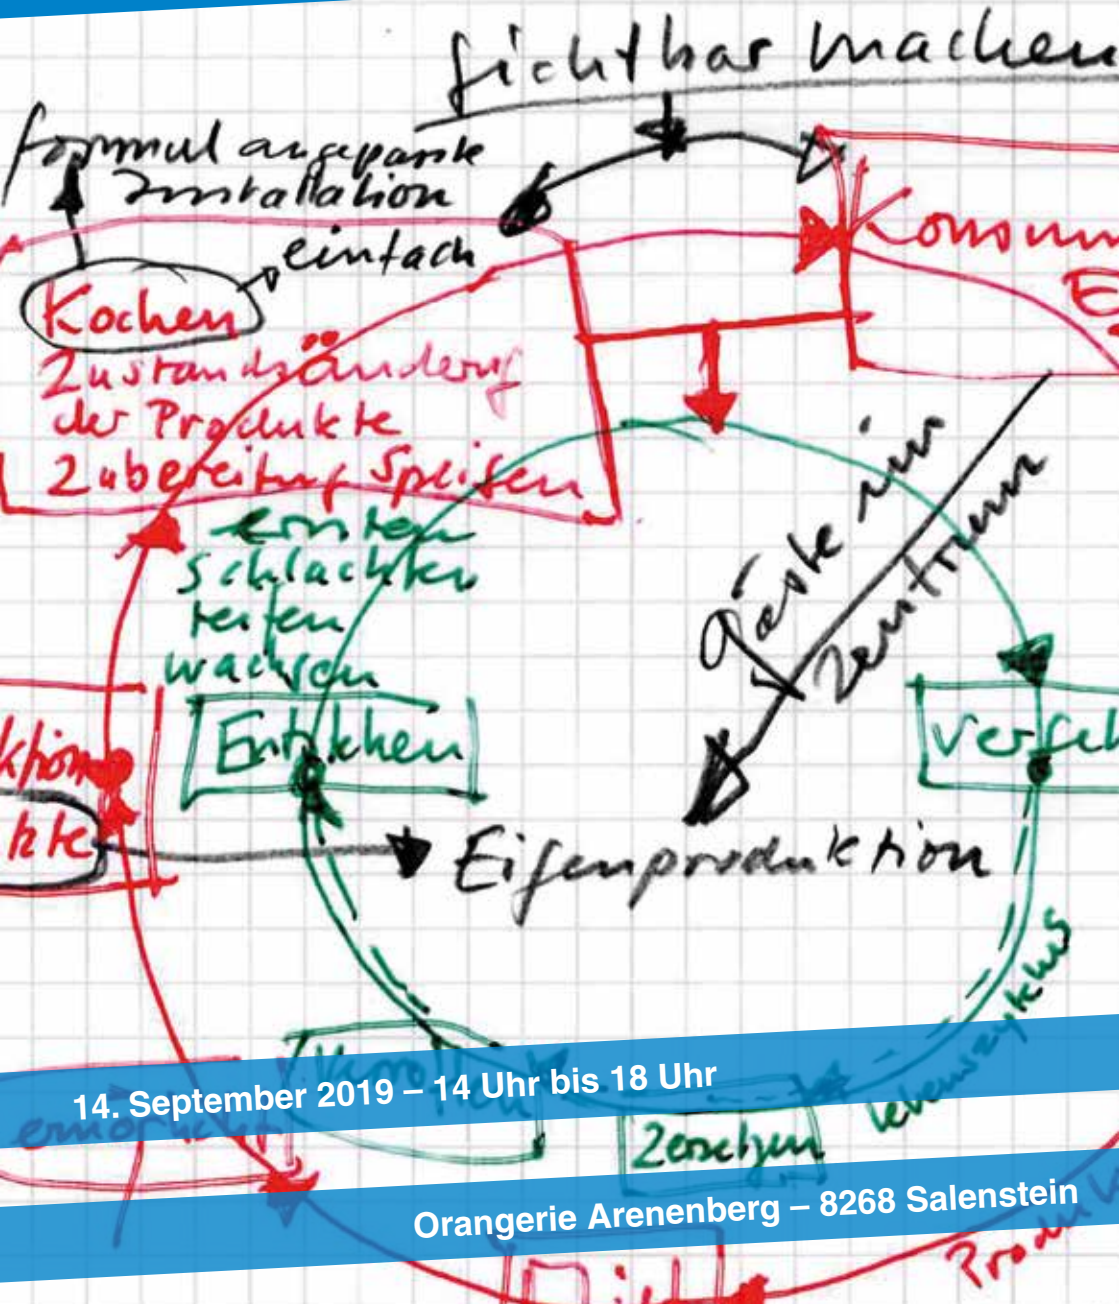 sichtbar machen
formal angepasste
Installation
einfach
Kochen
Zustandsänderung
der Produkte
Zubereitung Speisen
ernten
schlachten
reifen
wachsen
Entstehen
Gäste im
Zentrum
Eigenproduktion
Lebenszyklus
14. September 2019 – 14 Uhr bis 18 Uhr
Zersetzen
Orangerie Arenenberg – 8268 Salenstein